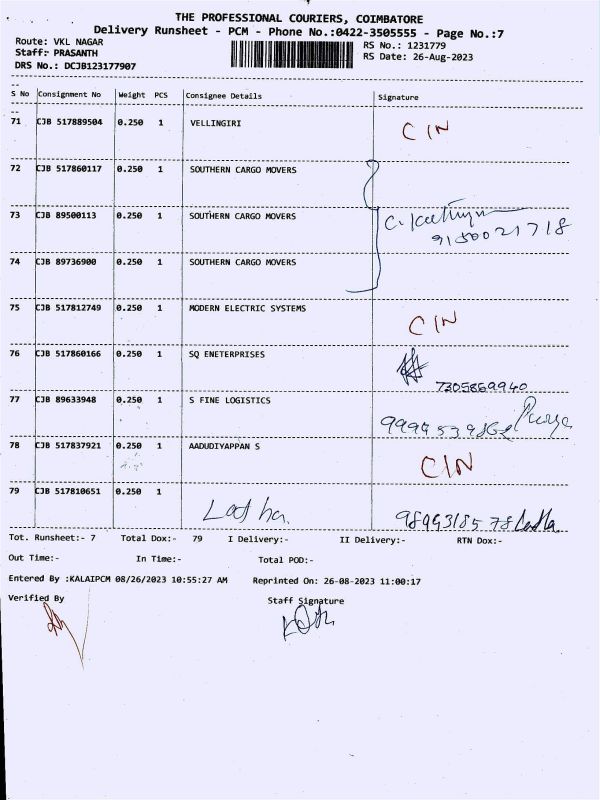 THE PROFESSIONAL COURIERS, COIMBATORE
Delivery Runsheet - PCM - Phone No.:0422-3505555 - Page No.:7
Route: VKL NAGAR RS No.: 1231779
Staff: PRASANTH RS Date: 26-Aug-2023
DRS No.: DCJB123177907
S No Consignment No Weight PCS Consignee Details Signature
71 CJB 517889504 0.250 1 VELLINGIRI CIN
72 CJB 517860117 0.250 1 SOUTHERN CARGO MOVERS
73 CJB 89500113 0.250 1 SOUTHERN CARGO MOVERS
9180021718
74 CJB 89736900 0.250 1 SOUTHERN CARGO MOVERS
75 CJB 517812749 0.250 1 MODERN ELECTRIC SYSTEMS CIN
76 CJB 517860166 0.250 1 SQ ENETERPRISES
7305869940
77 CJB 89633948 0.250 1 S FINE LOGISTICS
78 CJB 517837921 0.250 1 AADUDIYAPPAN S CIN
79 CJB 517810651 0.250 1
Tot. Runsheet:- 7 Total Dox:- 79 I Delivery:- II Delivery:- RTN Dox:-
Out Time:- In Time:- Total POD:-
Entered By :KALAIPCM 08/26/2023 10:55:27 AM Reprinted On: 26-08-2023 11:00:17
Verified By Staff Signature